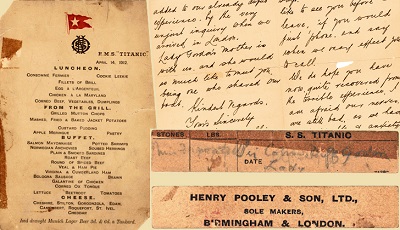 R.M.S. "TITANIC."
APRIL 14, 1912.
LUNCHEON.
CONSOMMÉ FERMIER COCKIE LEEKIE
FILLETS OF BRILL
EGG À L'ARGENTEUIL
CHICKEN À LA MARYLAND
CORNED BEEF, VEGETABLES, DUMPLINGS
FROM THE GRILL.
GRILLED MUTTON CHOPS
MASHED, FRIED & BAKED JACKET POTATOES
CUSTARD PUDDING
APPLE MERINGUE PASTRY
BUFFET.
SALMON MAYONNAISE POTTED SHRIMPS
NORWEGIAN ANCHOVIES SOUSED HERRINGS
PLAIN & SMOKED SARDINES
ROAST BEEF
ROUND OF SPICED BEEF
VEAL & HAM PIE
VIRGINIA & CUMBERLAND HAM
BOLOGNA SAUSAGE BRAWN
GALANTINE OF CHICKEN
CORNED OX TONGUE
LETTUCE BEETROOT TOMATOES
CHEESE.
CHESHIRE, STILTON, GORGONZOLA, EDAM,
CAMEMBERT, ROQUEFORT, ST. IVEL,
CHEDDAR
Iced draught Munich Lager Beer 3d. & 6d. a Tankard.
added to our already
experience, by the very
unjust inquiry when we
arrived in London.
Lady Gordon's mother is
with us and who would
so much like to meet you
being one who shared our
boat.
Kindest Regards.
Yours Sincerely
like to see you before
leave, if you would
just phone, and say
when we may expect you
to call.
We do hope you have
now quite recovered from
the terrible experience, I
am afraid our nerves
are still bad, as we had
STONES LBS. S. S. TITANIC
DATE
Lady
HENRY POOLEY & SON, LTD.,
SOLE MAKERS,
BIRMINGHAM & LONDON.